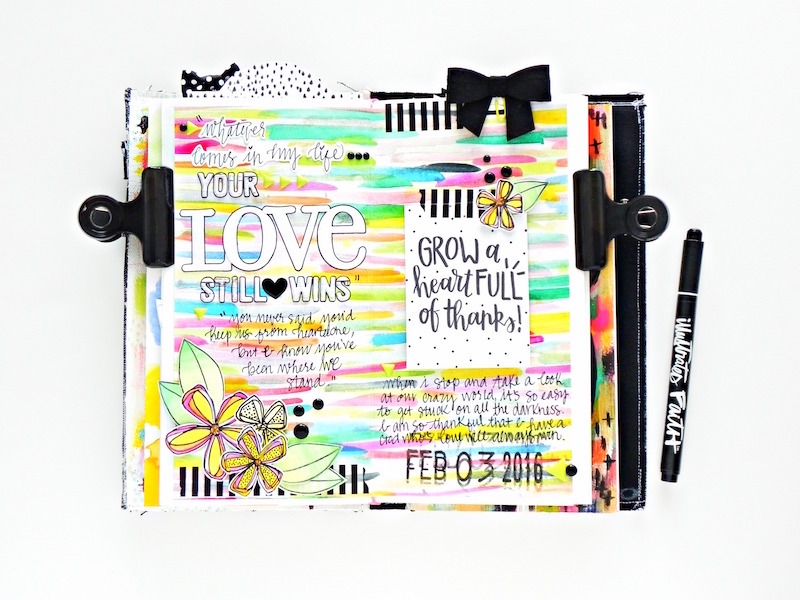 "whatever
comes in my life...
YOUR
LOVE
STILL♥WINS"
"you never said you'd
keep us from heartache,
but I know you've
been where we
stand."
GROW a
heart FULL
of thanks!
when I stop and take a look
at our crazy world, it's so easy
to get stuck on all the darkness.
I am so thankful that I have a
God who's love will always win.
FEB 03 2016
illustrated FAITH